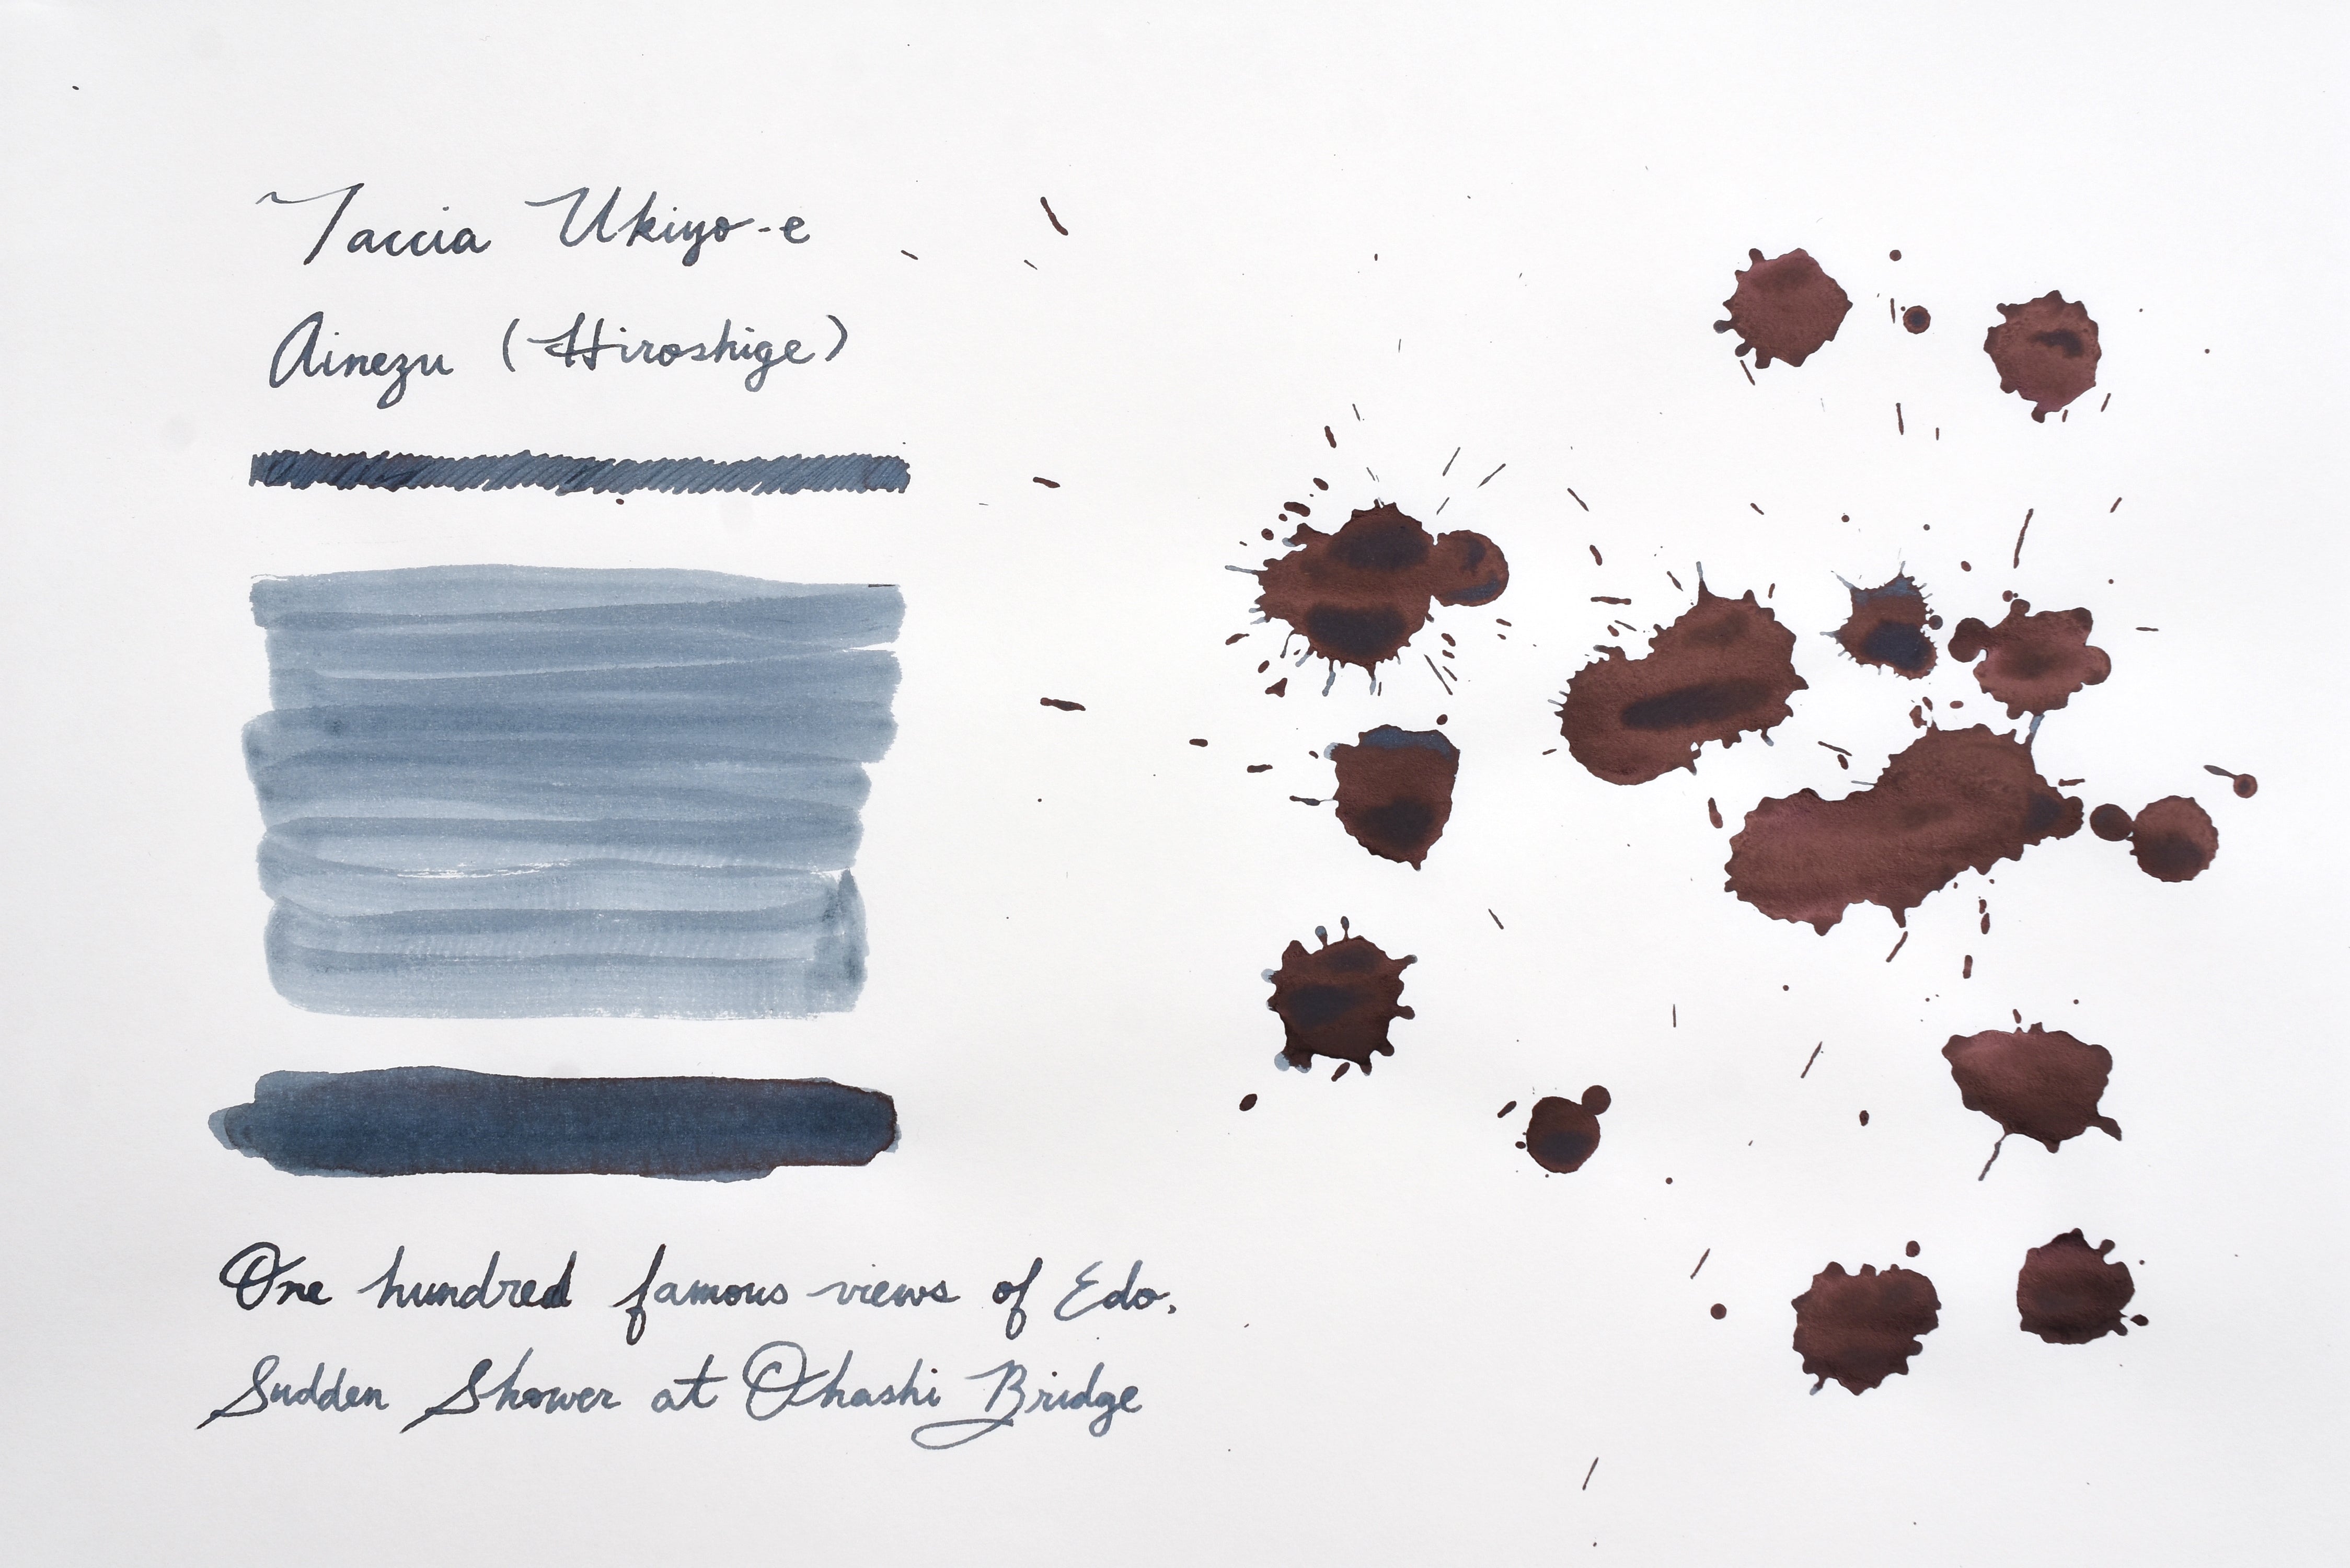 Taccia Ukiyo-e
Ainezu (Hiroshige)
One hundred famous views of Edo.
Sudden Shower at Ohashi Bridge